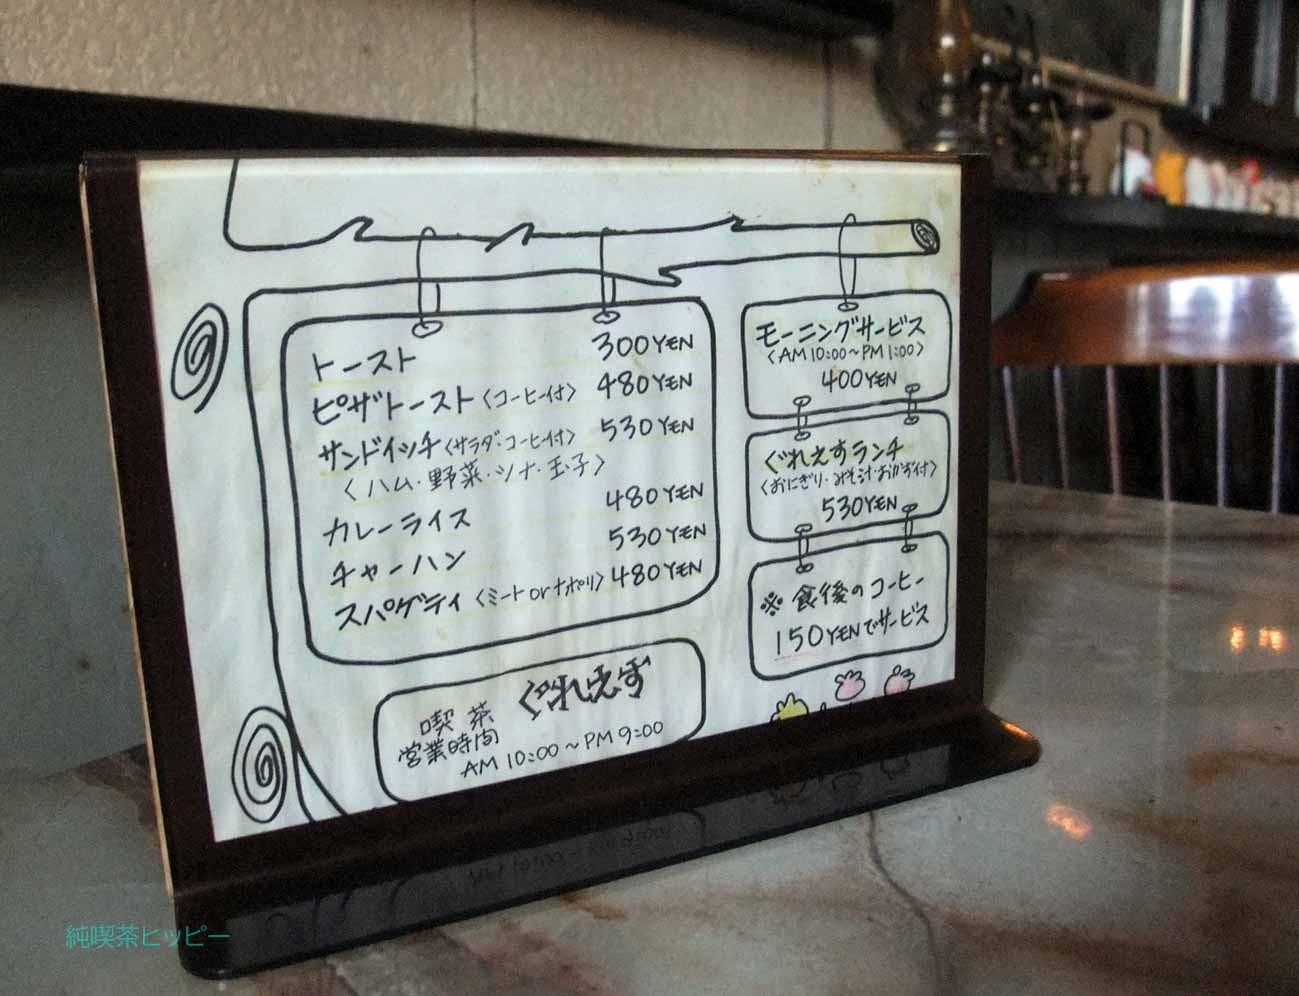 トースト 300YEN
ピザトースト〈コーヒー付〉 480YEN
サンドイッチ〈サラダ・コーヒー付〉 530YEN
〈ハム・野菜・ツナ・玉子〉
カレーライス 480YEN
チャーハン 530YEN
スパゲティ〈ミートorナポリ〉 480YEN
喫茶 ぐれえす
営業時間
AM10:00～PM9:00
モーニングサービス
〈AM10:00～PM1:00〉
400YEN
ぐれえすランチ
〈おにぎり・みそ汁・おかず付〉
530YEN
※食後のコーヒー
150YENでサービス
純喫茶ヒッピー